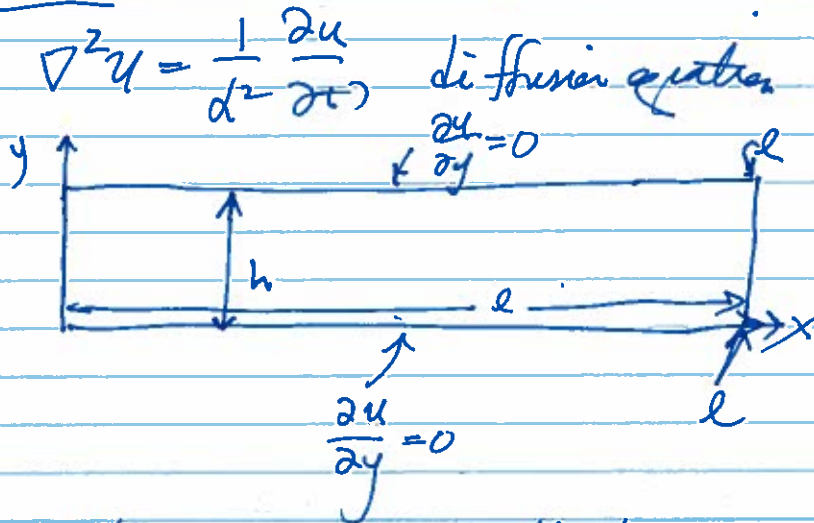 ∇²u = 1/α² ∂u/∂t, diffusion equation
∂u/∂y = 0
y
l
h
l
x
l
∂u/∂y = 0